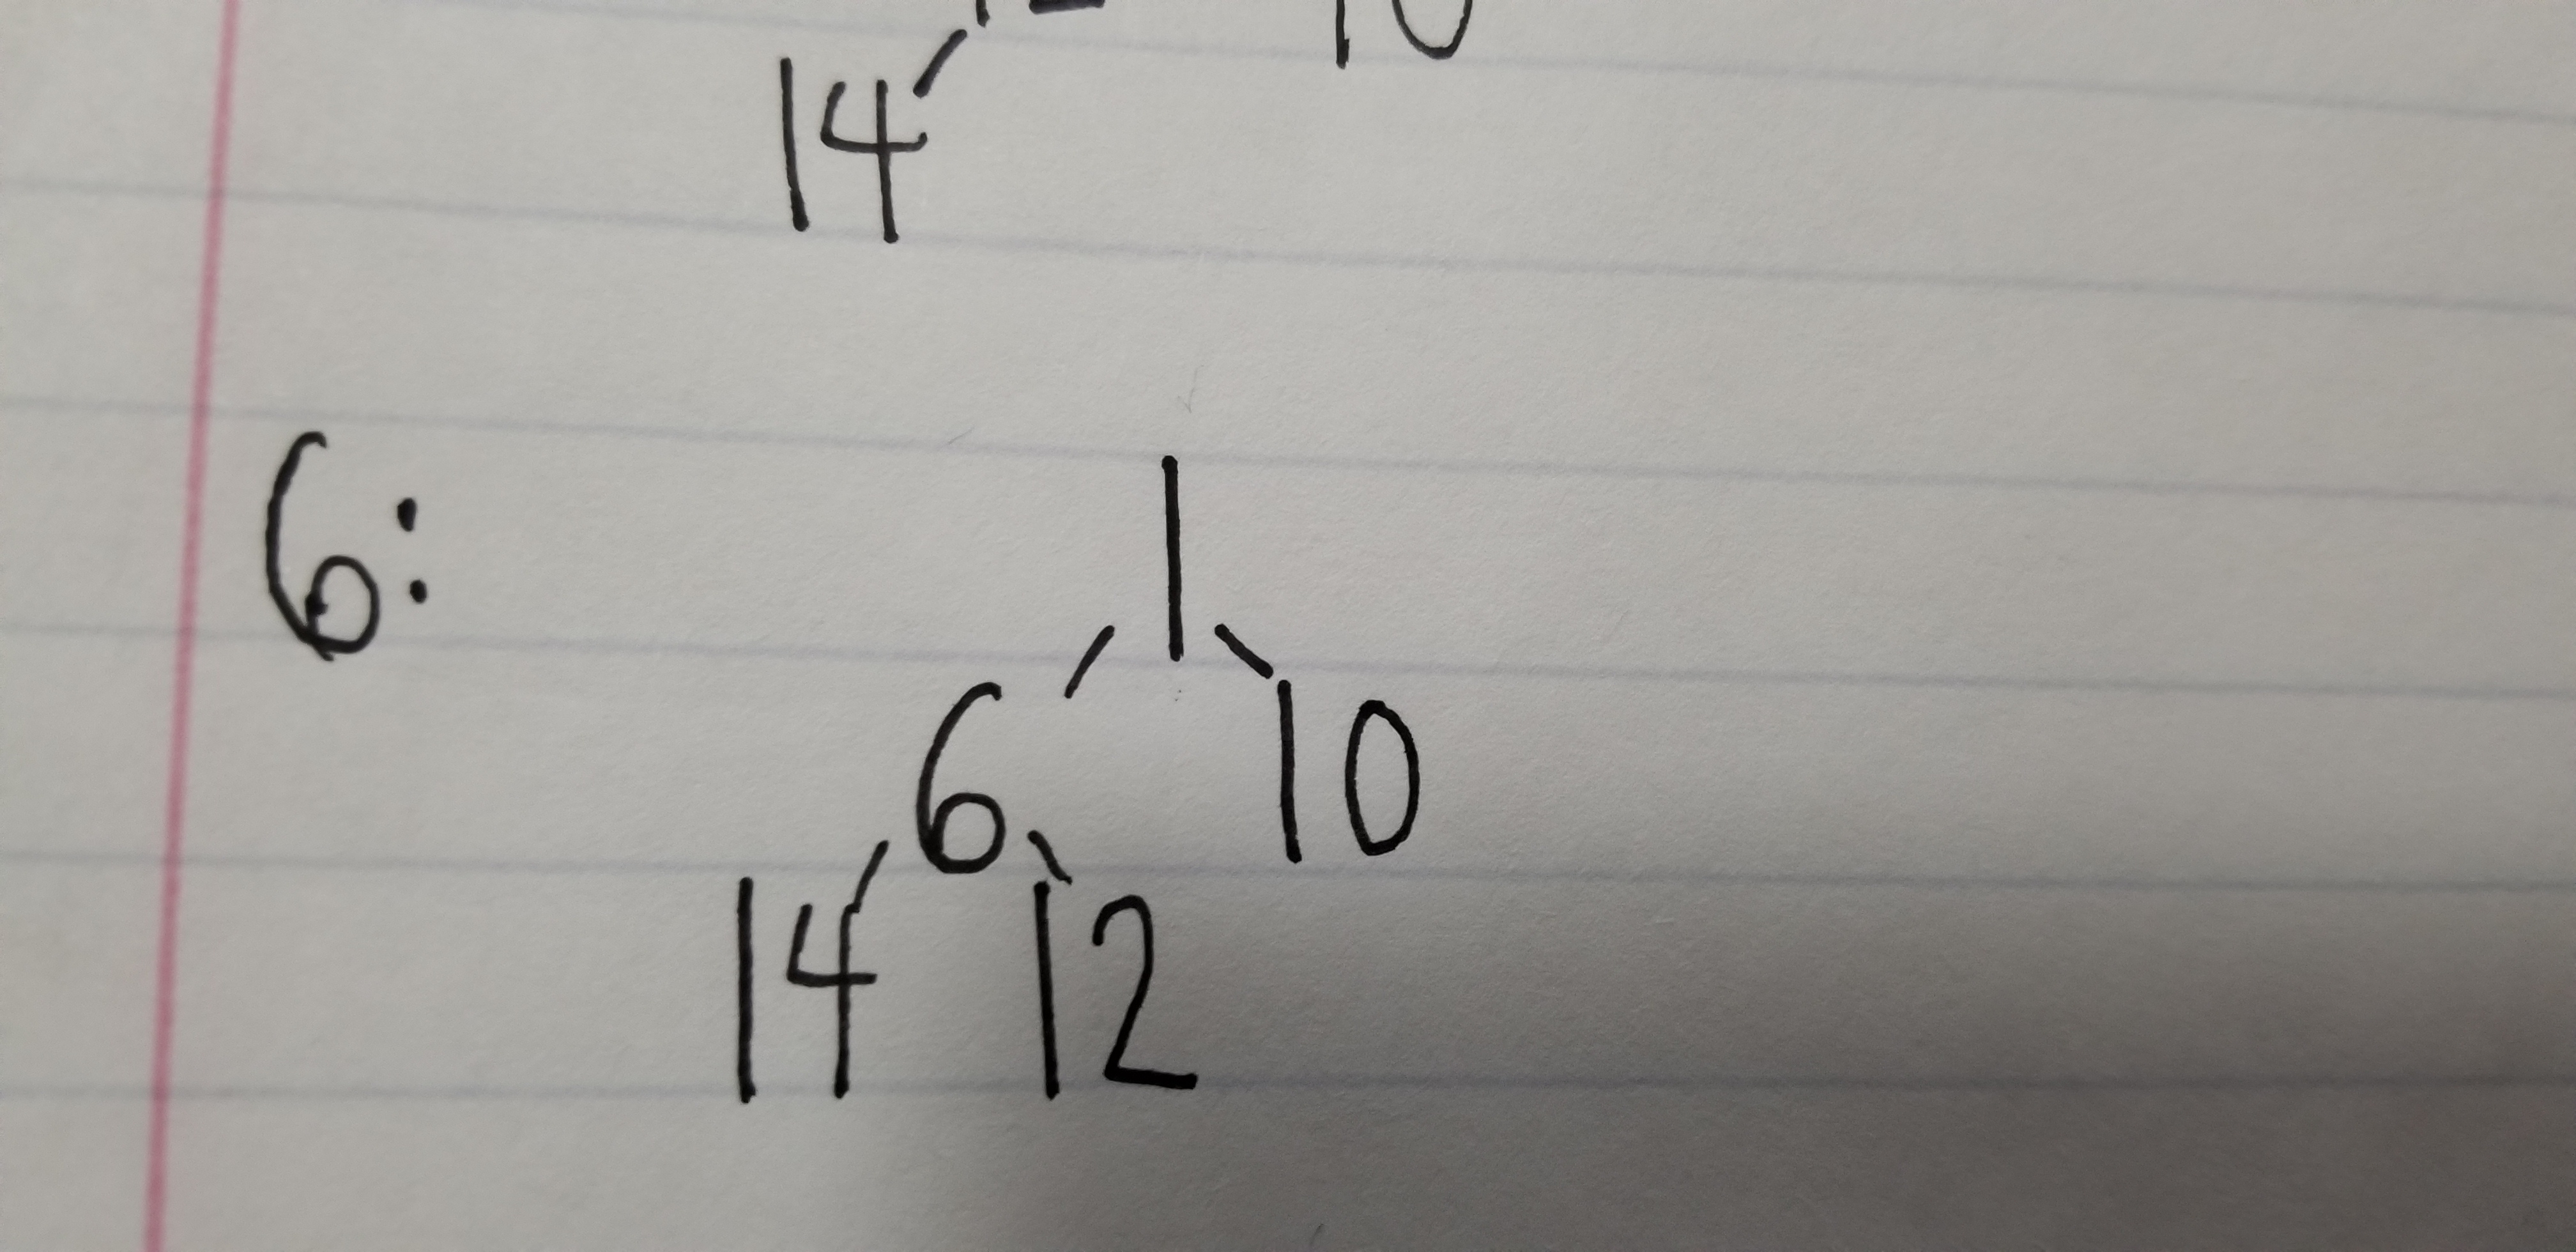 14
6:
1
6 10
14 12